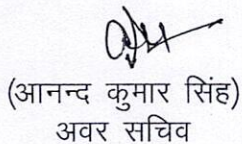 (आनन्द कुमार सिंह)
अवर सचिव